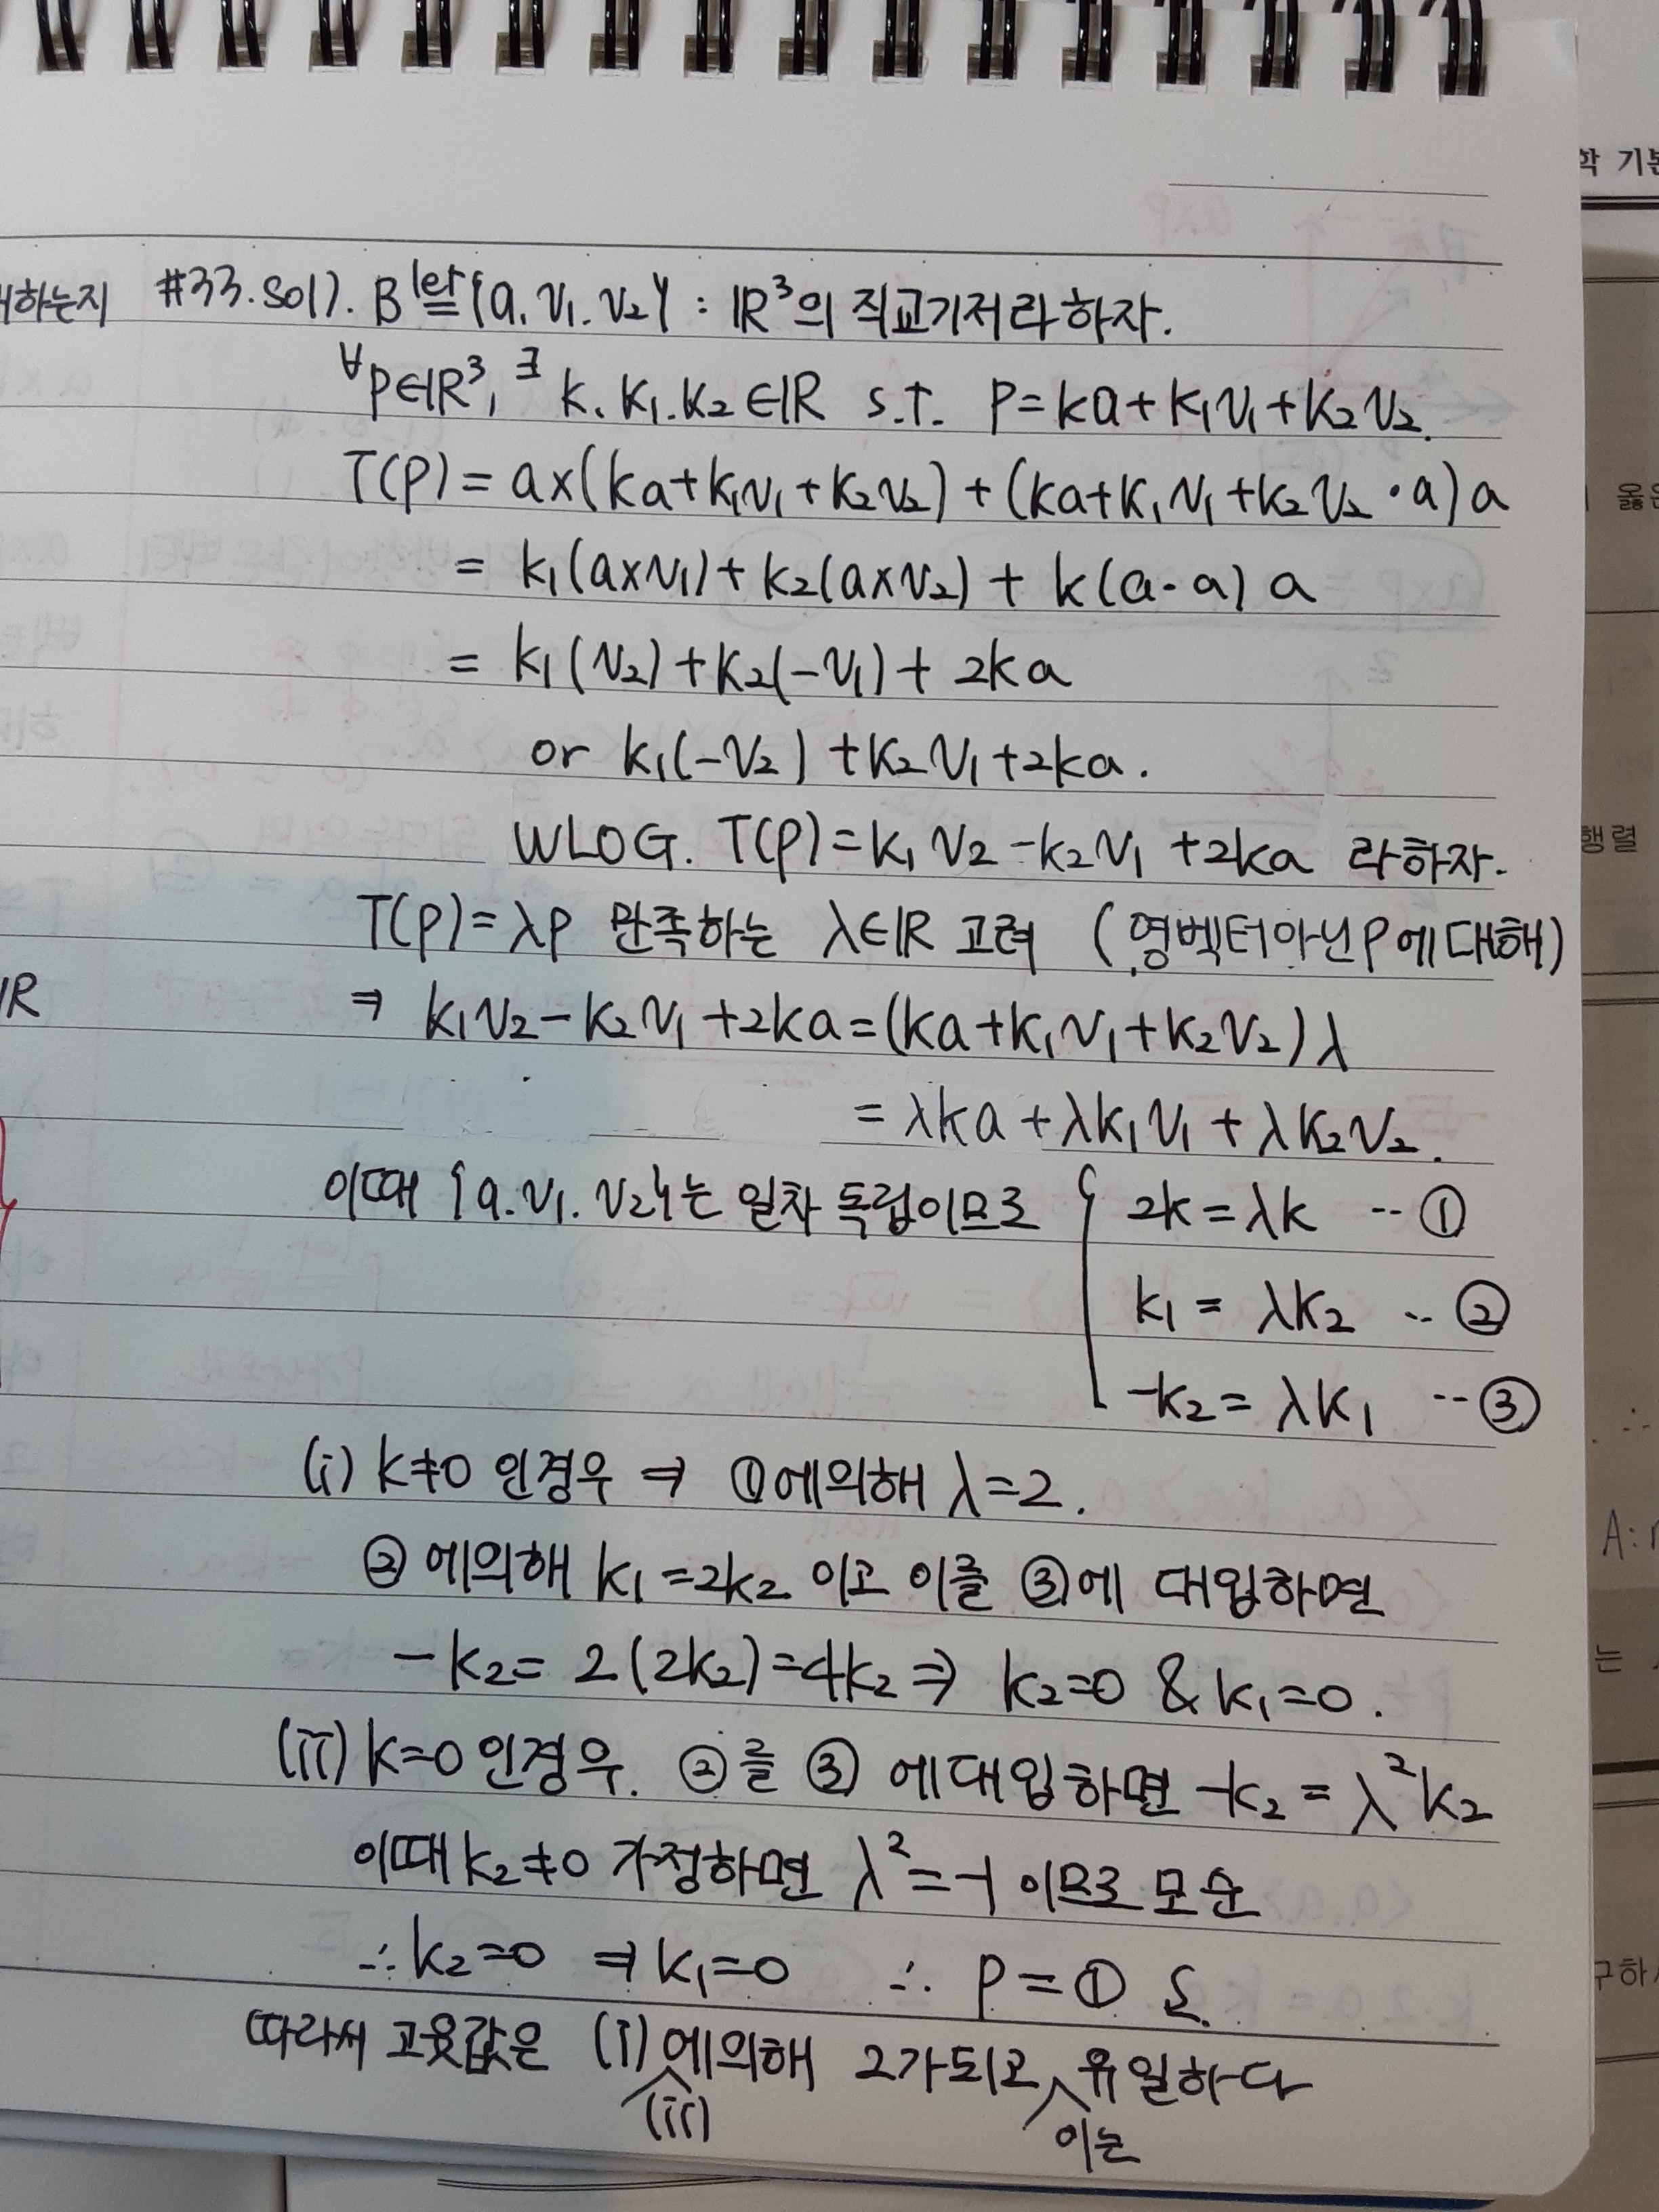 학 기본
#33. Sol). B={a, v₁, v₂} : ℝ³의 직교기저라 하자.
하는지
∀p∈ℝ³, ∃ k, k₁, k₂∈ℝ s.t. p=ka+k₁v₁+k₂v₂.
T(p) = a×(ka+k₁v₁+k₂v₂) + (ka+k₁v₁+k₂v₂·a)a
= k₁(a×v₁)+k₂(a×v₂)+k(a·a)a
= k₁(v₂)+k₂(-v₁)+2ka
or k₁(-v₂)+k₂v₁+2ka.
WLOG. T(p)=k₁v₂-k₂v₁+2ka 라하자.
행렬
T(p)=λp 만족하는 λ∈ℝ 고려 (영벡터아닌 p에 대해)
ℝ
⇒ k₁v₂-k₂v₁+2ka=(ka+k₁v₁+k₂v₂)λ
=λka+λk₁v₁+λk₂v₂.
이때 {a,v₁,v₂}는 일차 독립이므로 { 2k=λk --①
k₁=λk₂ --②
-k₂=λk₁ --③
(i) k≠0 인경우 ⇒ ①에의해 λ=2.
②에의해 k₁=2k₂ 이고 이를 ③에 대입하면
A:
-k₂=2(2k₂)=4k₂ ⇒ k₂=0 & k₁=0.
는
(ii) k=0 인경우. ②를 ③에대입하면 -k₂=λ²k₂
이때 k₂≠0 가정하면 λ²=-1 이므로 모순
∴k₂=0 ⇒k₁=0 ∴ p=𝟘
구하
따라서 고윳값은 (i) 에의해 2가되고 유일하다
(ii) 이는